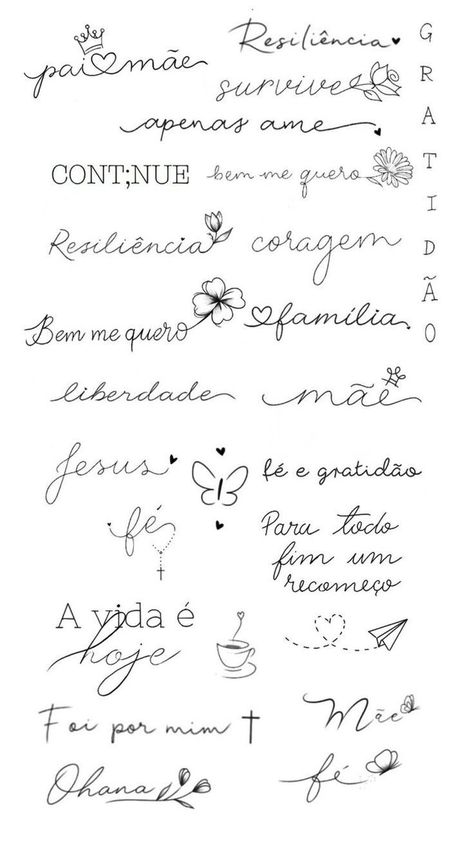 pai mãe
Resiliência
survive
apenas ame
CONT;NUE
bem me quero
GRATIDÃO
Resiliência
coragem
Bem me quero
família
liberdade
mãe
Jesus
fé e gratidão
fé
Para todo
fim um
recomeço
A vida é
hoje
Foi por mim
Mãe
Ohana
fé